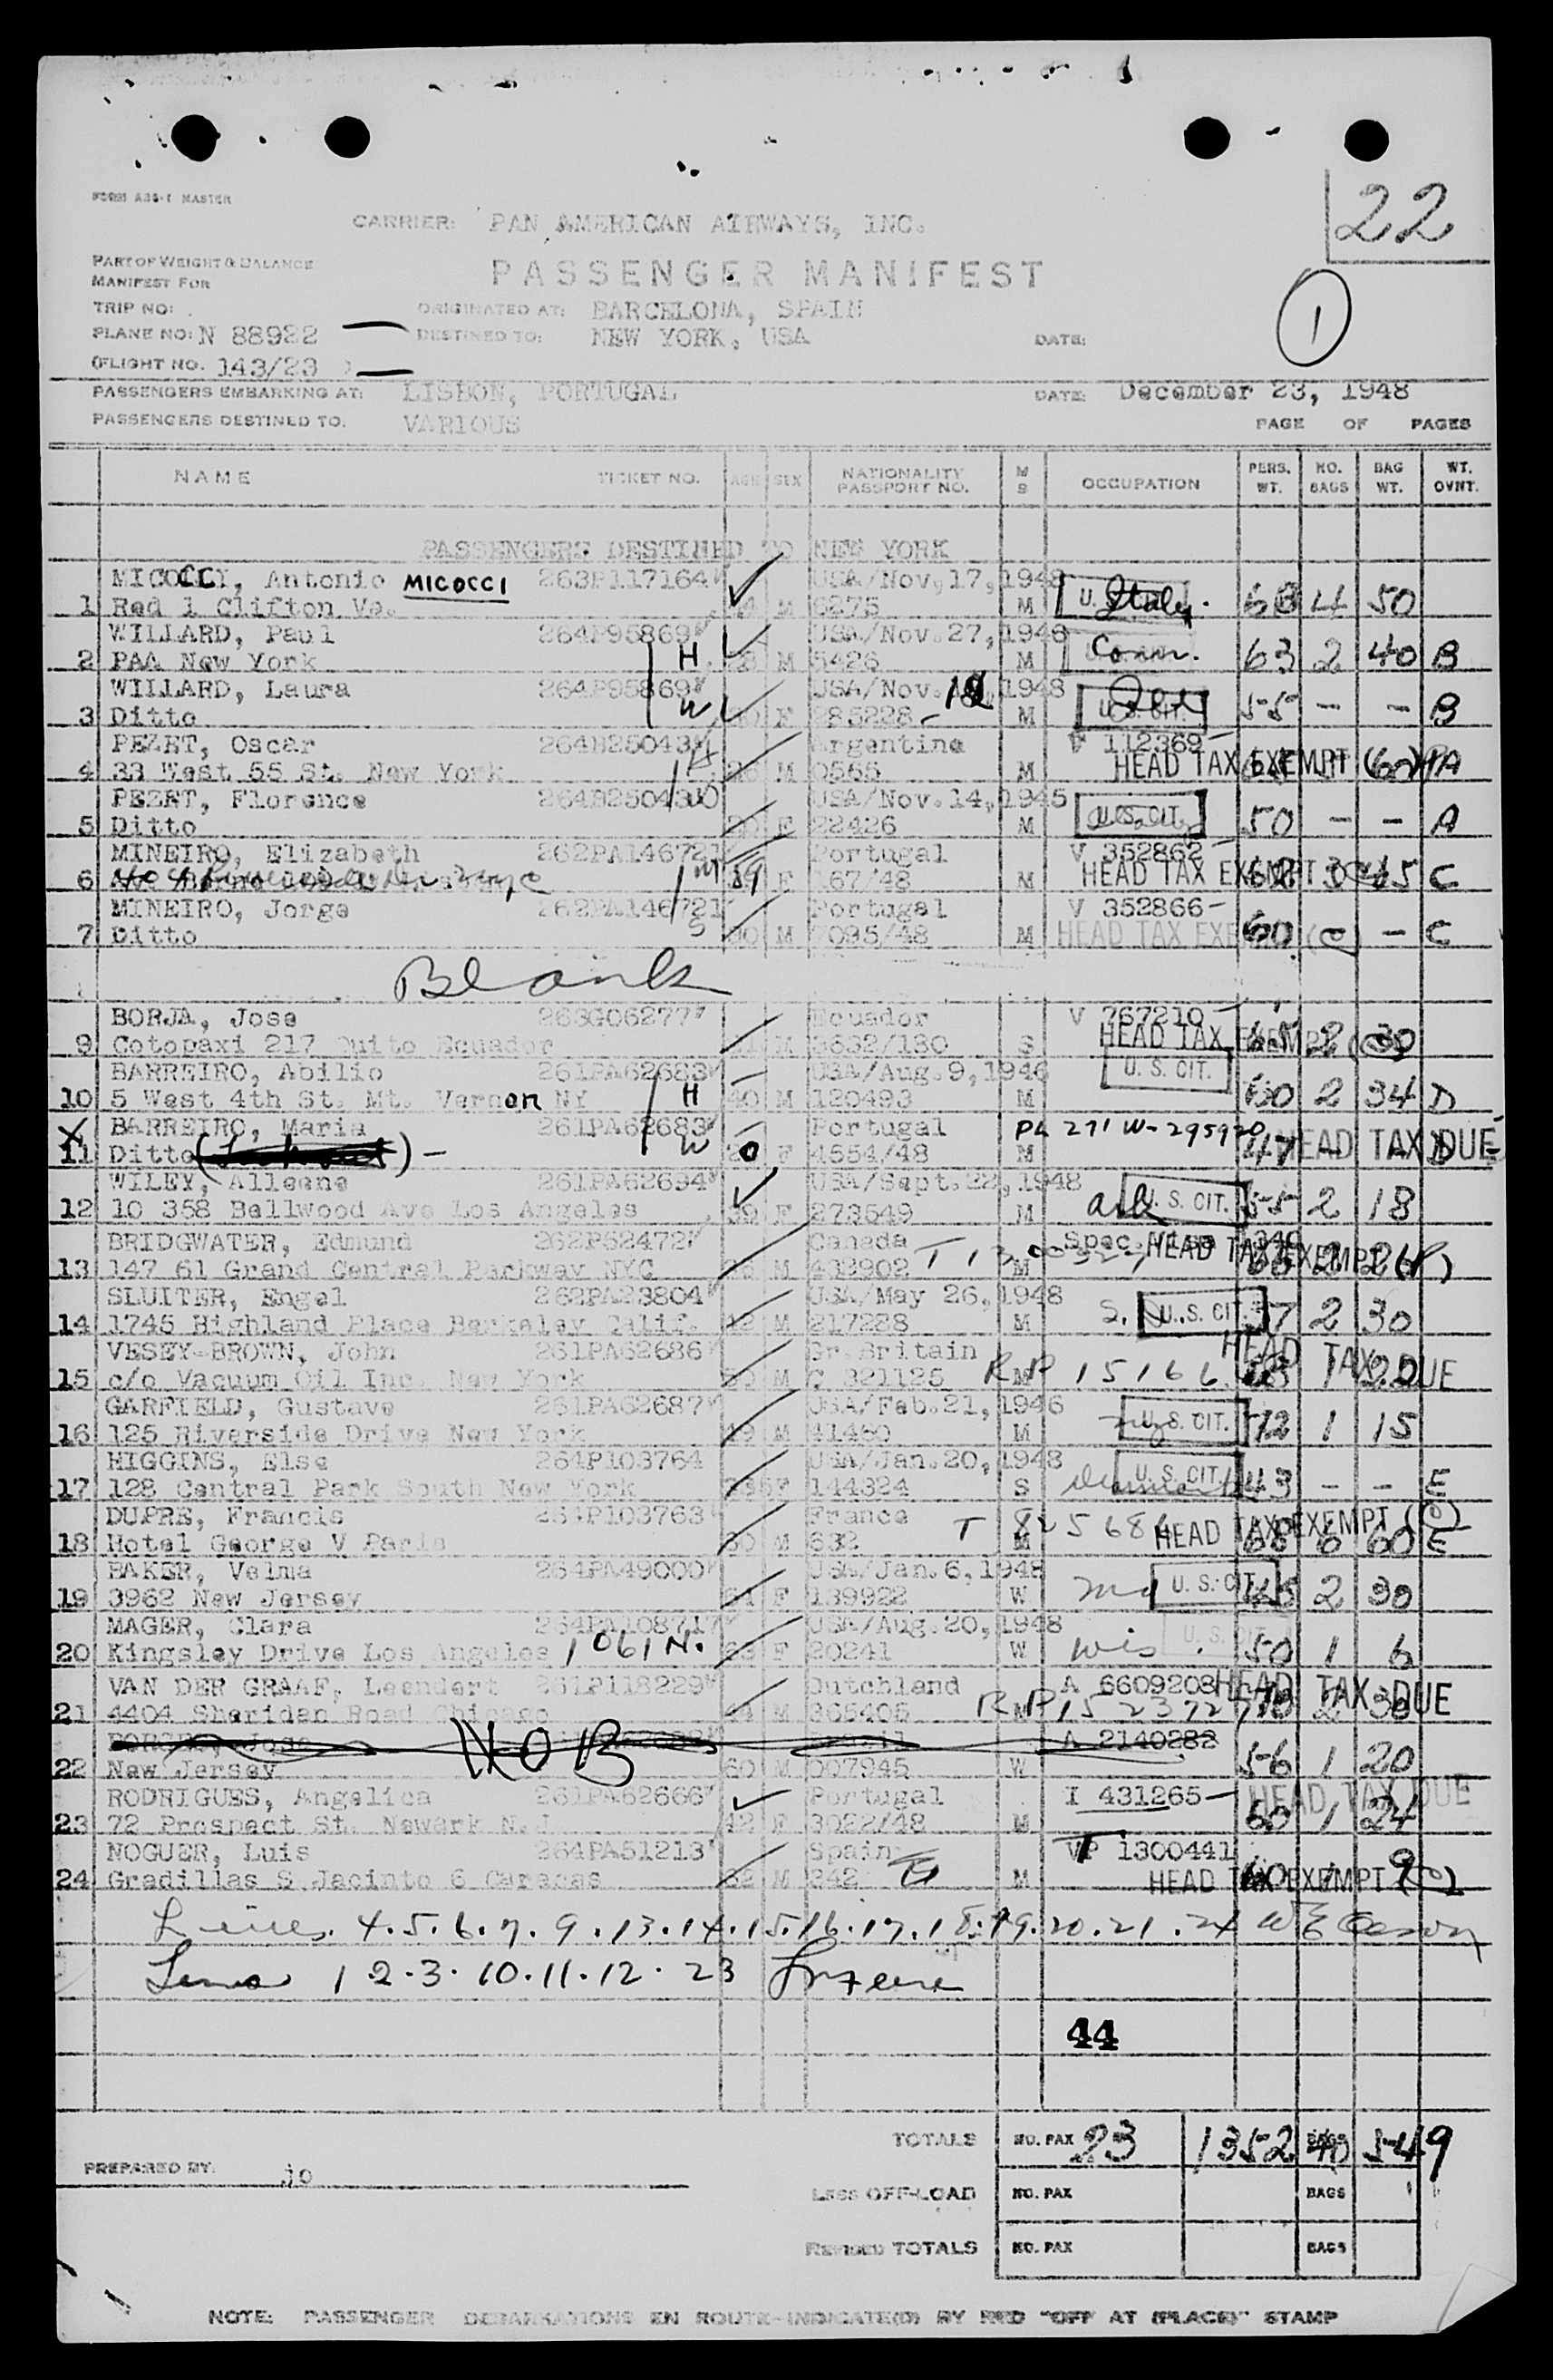 22
FORM A35-1 MASTER
CARRIER: PAN AMERICAN AIRWAYS, INC.
PART OF WEIGHT & BALANCE
MANIFEST FOR
PASSENGER MANIFEST
1
TRIP NO:
ORIGINATED AT: BARCELONA, SPAIN
PLANE NO: N 88922
DESTINED TO: NEW YORK, USA
DATE:
(FLIGHT NO. 143/23 )
PASSENGERS EMBARKING AT: LISBON, PORTUGAL
DATE: December 23, 1948
PASSENGERS DESTINED TO. VARIOUS
PAGE OF PAGES
NAME TICKET NO. AGE SEX NATIONALITY PASSPORT NO. M S OCCUPATION PERS. WT. NO. BAGS BAG WT. WT. OVNT.
PASSENGERS DESTINED TO NEW YORK
MICOCCI, Antonio MICOCCI 263P117164 USA/Nov.17,1948
1 Red 1 Clifton Va. M 6275 M Italy. 68 4 50
WILLARD, Paul 264P95869 USA/Nov.27,1948
2 PAA New York H M 5426 M Conn. 63 2 40 B
WILLARD, Laura 264P95869 USA/Nov. 1948
3 Ditto W F 285228 M U.S. CIT. 55 - - B
PEZET, Oscar 264B25043 Argentina V 112369
4 33 West 55 St. New York H M 0565 M HEAD TAX EXEMPT A
PEZET, Florence 264B25043 USA/Nov.14,1945
5 Ditto W F 22426 M U.S. CIT. 50 - - A
MINEIRO, Elizabeth 262PA146721 Portugal V 352862
6 M 59 F 167/48 M HEAD TAX EXEMPT C
MINEIRO, Jorge 262PA146721 Portugal V 352866
7 Ditto S M 7095/48 M HEAD TAX EXE 60 - C
Blank
BORJA, Jose 263G06277 Ecuador V 767210
9 Cotopaxi 217 Quito Ecuador M 3632/130 S HEAD TAX EXEMPT 2 30
BARREIRO, Abilio 261PA62683 USA/Aug.9,1946 U. S. CIT.
10 5 West 4th St. Mt. Vernon NY H 40 M 120493 M 60 2 34 D
BARREIRO, Maria 261PA62683 Portugal PL 271 W-295920
11 Ditto W F 4554/48 M HEAD TAX DUE
WILEY, Alleene 261PA62694 USA/Sept.22,1948
12 10 358 Bellwood Ave Los Angeles 39 F 273549 M Ark U. S. CIT. 55 2 18
BRIDGWATER, Edmund 262P52472 Canada
13 147 61 Grand Central Parkway NYC M 432902 M HEAD TAX EXEMPT
SLUITER, Engel 262PA23804 USA/May 26,1948
14 1745 Highland Place Berkeley Calif. 42 M 217228 M U.S. CIT 2 30
VESEY-BROWN, John 261PA62686 Gr. Britain HEAD TAX DUE
15 c/o Vacuum Oil Inc. New York 50 M C 321125 M 1 22
GARFIELD, Gustave 261PA62687 USA/Feb.21,1946
16 125 Riverside Drive New York 49 M 41460 M U.S. CIT. 72 1 15
HIGGINS, Else 264P103764 USA/Jan.20,1948
17 128 Central Park South New York F 144324 S U. S. CIT. 43 - - E
DUPRE, Francis 264P103763 France
18 Hotel George V Paris M 632 M HEAD TAX EXEMPT 68 6 60 E
BAKER, Velma 264PA49000 USA/Jan.6,1948
19 3962 New Jersey F 139922 W Md U. S. CIT. 2 30
MAGER, Clara 264PA108717 USA/Aug.20,1948
20 Kingsley Drive Los Angeles 1061 N. F 20241 W Wis. 50 1 6
VAN DER GRAAF, Leendert 261P118229 Dutchland A 6609208 HEAD TAX DUE
21 4404 Sheridan Road Chicago M 365405 M 2 30
NOB A 2140282
22 New Jersey 60 M 007945 W 56 1 20
RODRIGUES, Angelica 261PA62666 Portugal I 431265 HEAD TAX DUE
23 72 Prospect St. Newark N.J. 42 F 3022/48 M 60 1 24
NOGUER, Luis 264PA51213 Spain 1300441
24 Gradillas S Jacinto 6 Caracas M 242 M HEAD TAX EXEMPT 9
Lines. 4.5.6.7.9.13.14.15.16.17.18.19.20.21.24
Lines 1.2.3.10.11.12.23
44
TOTALS NO. PAX 23 1352 BAGS 40 549
PREPARED BY. jo
LESS OFF-LOAD NO. PAX BAGS
REVISED TOTALS NO. PAX BAGS
NOTE: PASSENGER DEBARKATIONS EN ROUTE-INDICATE(D) BY RED "OFF AT (PLACE)" STAMP